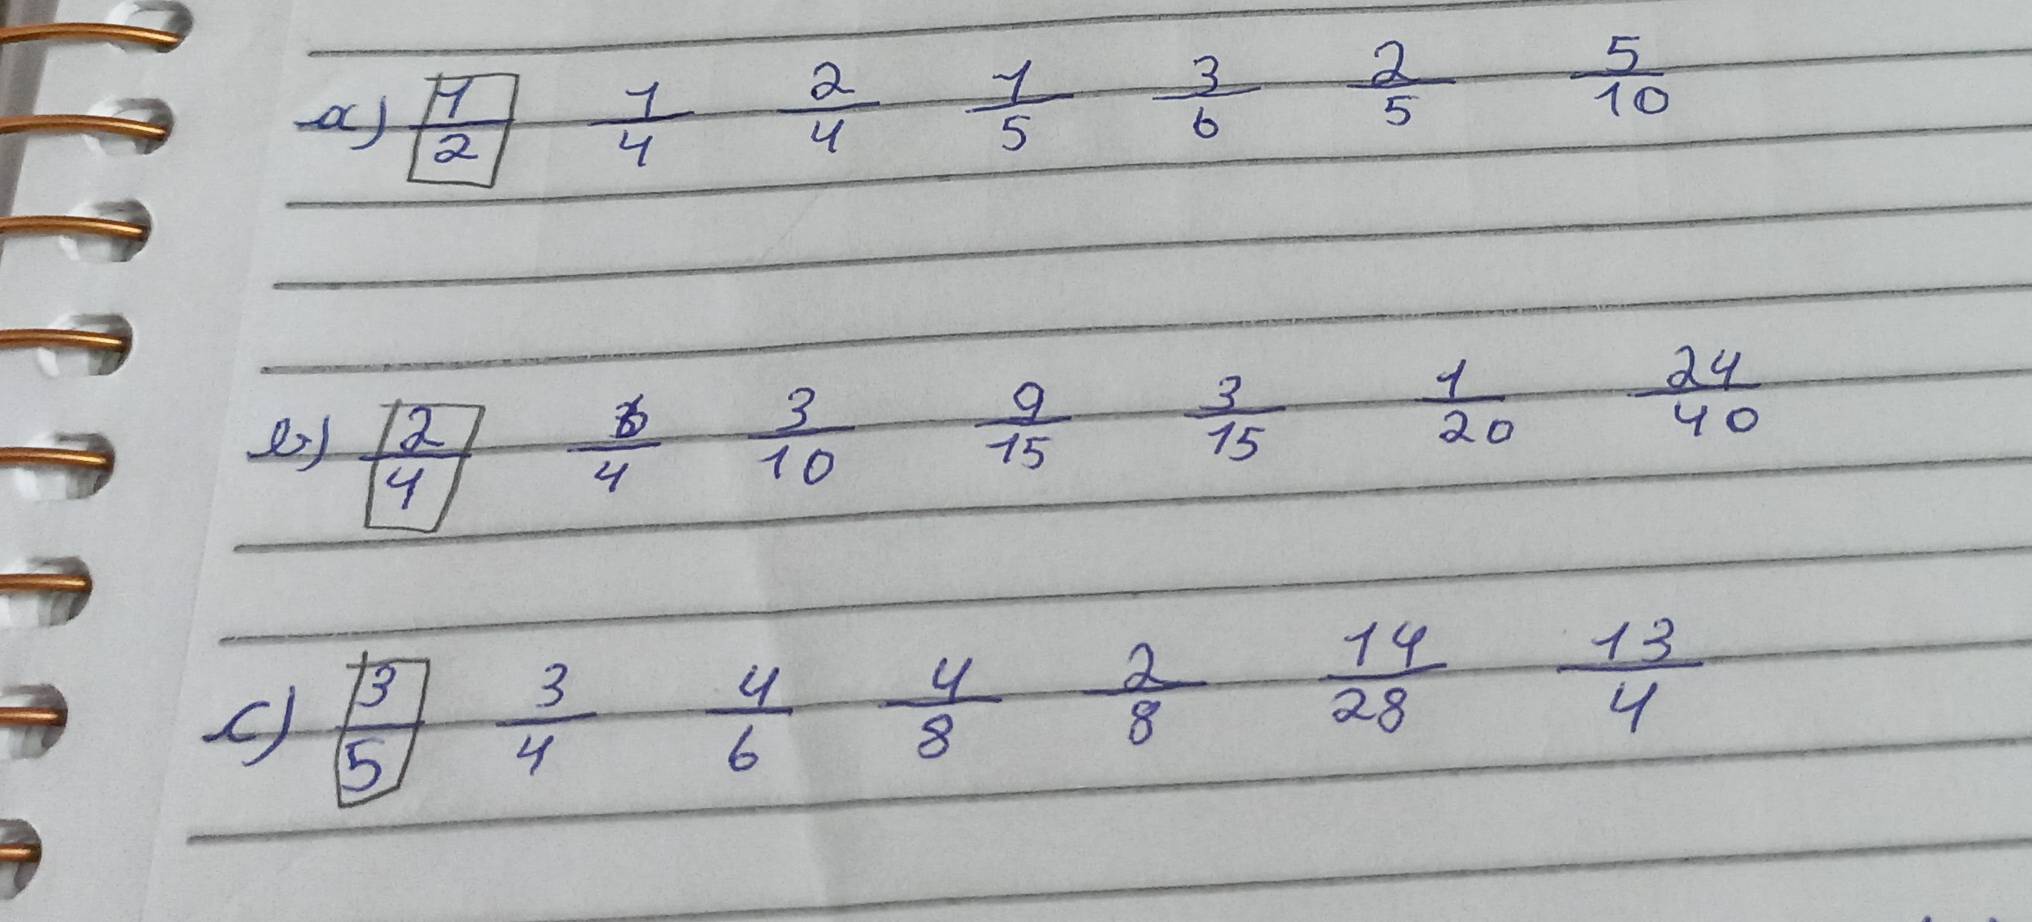 a) 1/2 1/4 2/4 1/5 3/6 2/5 5/10
b) 2/4 /4 3/10 9/15 3/15 1/20 24/40
c) 3/5 3/4 4/6 4/8 2/8 14/28 13/4